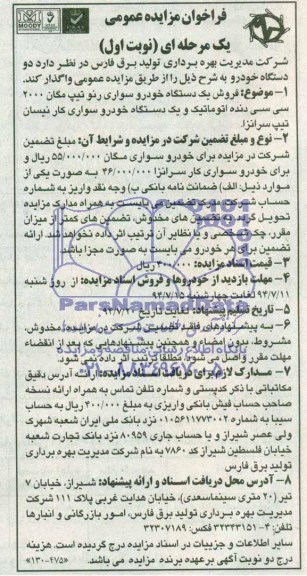 فراخوان مزایده عمومی
یک مرحله ای (نوبت اول)
MOODY
شرکت مدیریت بهره برداری تولید برق فارس در نظر دارد دو
دستگاه خودرو به شرح ذیل را از طریق مزایده عمومی واگذار کند.
۱- موضوع: فروش یک دستگاه خودرو سواری رنو تیپ مگان ۲۰۰۰
سی سی دنده اتوماتیک و یک دستگاه خودرو سواری کار نیسان
تیپ سرانزا.
۲- نوع و مبلغ تضمین شرکت در مزایده و شرایط آن: مبلغ تضمین
شرکت در مزایده برای خودرو سواری مگان ۵۵/۰۰۰/۰۰۰ ریال و
برای خودرو سواری کار سرانزا ۴۶/۰۰۰/۰۰۰ به صورت یکی از
موارد ذیل: الف) ضمانت نامه بانکی ب) وجه نقد واریز به شماره
حساب می بایست به همراه مدارک مزایده
تحویل گردد. به تضمین های مخدوش، تضمین های کمتر از میزان
مقرر، چک شخصی و یا نظایر آن ترتیب اثر داده نخواهد شد. ارائه
تضمین برای هر خودرو می بایست به صورت مجزا باشد.
۳- قیمت اسناد مزایده: ۳۰۰/۰۰۰ ریال
۴- مهلت بازدید از خودروها و فروش اسناد مزایده: از روز شنبه
۹۴/۷/۱۱ لغایت چهارشنبه ۹۴/۷/۱۵
۵- تاریخ تحویل پیشنهاد: لغایت تاریخ
۶- به پیشنهادهای فاقد تضمین شرکت در مزایده، مخدوش،
مشروط، بدون امضاء و همچنین پیشنهادهایی که بعد از انقضاء
مهلت مقرر واصل می شود مطلقا ترتیب اثر داده نمی شود.
۷- مدارک لازم برای دریافت اسناد مزایده: ارائه آدرس دقیق
مکاتباتی با ذکر کدپستی و شماره تلفن تماس به همراه ارائه نسخه
صاحب حساب فیش بانکی واریزی به مبلغ ۳۰۰/۰۰۰ ریال به حساب
سیبا به شماره ۰۱۰۵۶۱۱۷۷۳۰۰۲ نزد بانک ملی ایران شعبه شهرک
ولی عصر شیراز و یا حساب جاری ۸۰۹۵۹ نزد بانک تجارت شعبه
خیابان فلسطین شیراز کد ۷۸۶۰ به نام شرکت مدیریت بهره برداری
تولید برق فارس
۸- آدرس محل دریافت اسناد و ارائه پیشنهاد: شیراز، خیابان ۷
تیر (۲۰ متری سینماسعدی)، خیابان هدایت غربی پلاک ۱۱۱ شرکت
مدیریت بهره برداری تولید برق فارس، امور بازرگانی و انبارها
تلفن: ۴-۳۲۳۴۳۱۵۱ فکس: ۳۲۳۰۷۱۸۹
سایر اطلاعات و جزییات در اسناد مزایده درج گردیده است. هزینه
درج دو نوبت آگهی برعهده برنده مزایده می باشد. «۱۳۰-۴۷۵»
ParsNamadData